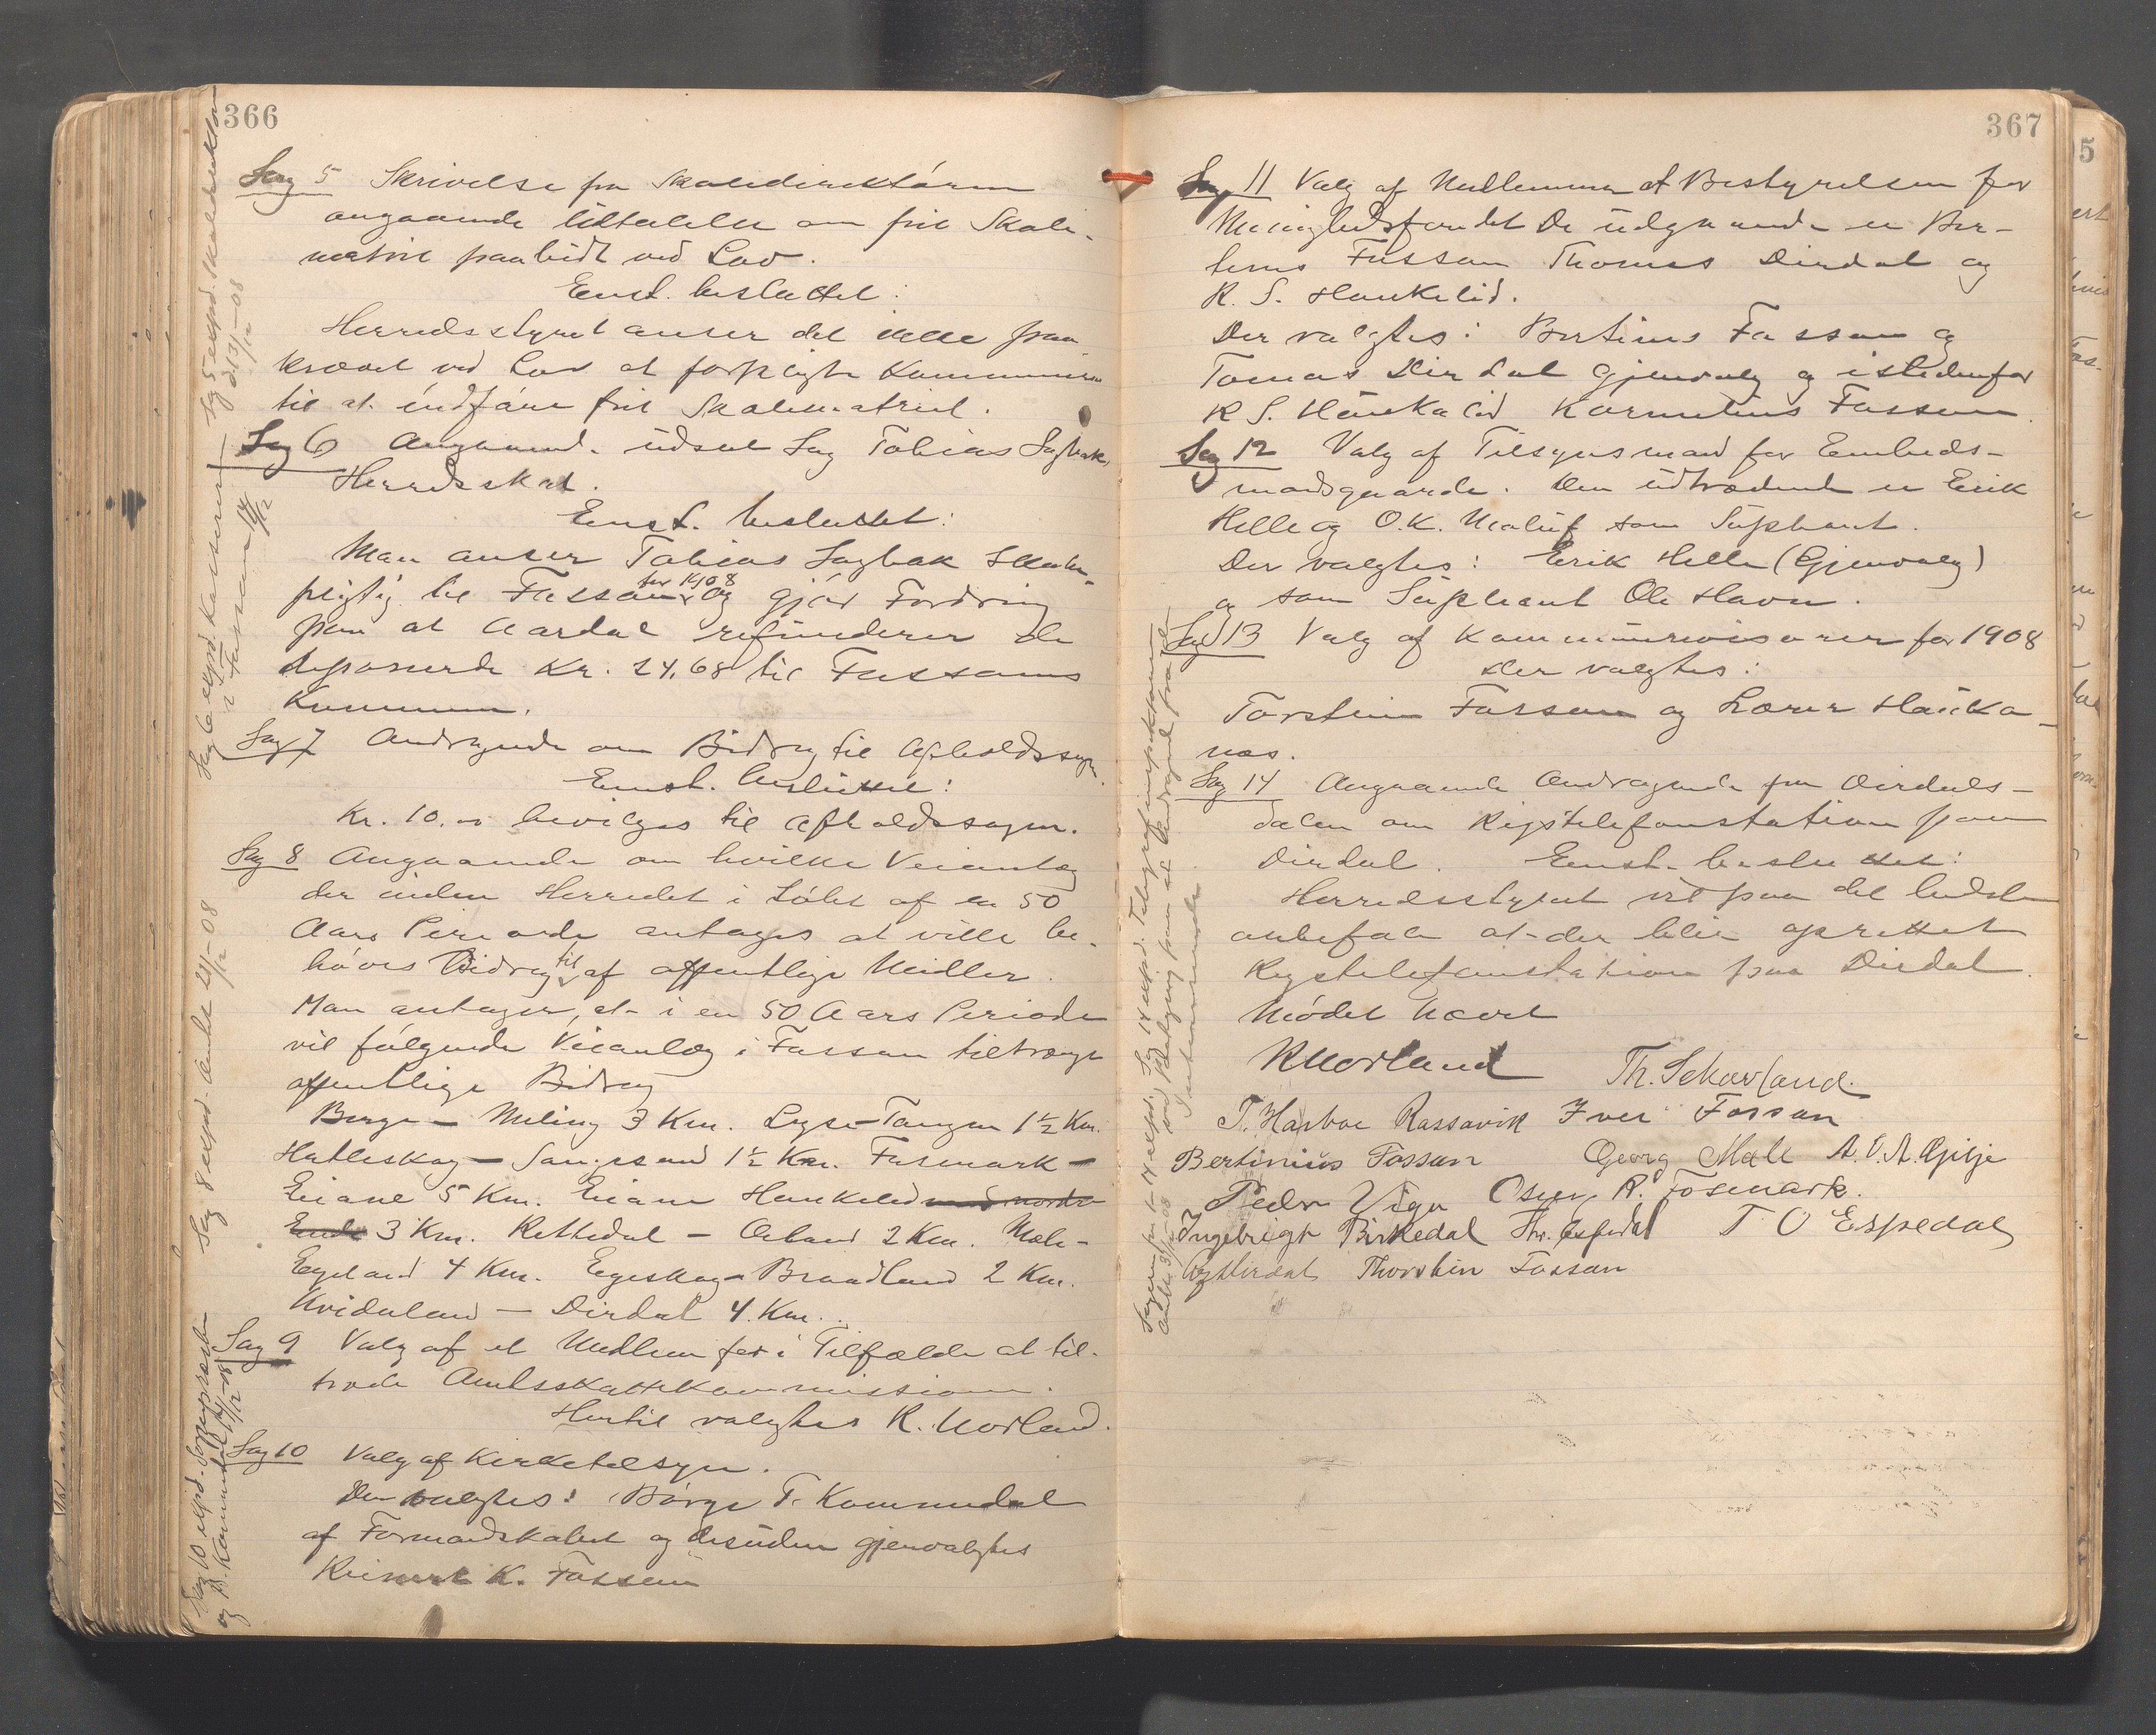 366
Sag 5 Skrivelse fra Skoledirektøren
angaaende Udtalelse om frit Skole-
matriel paabudt ved Lov.
Enst. besluttet:
Herredsstyret anser det ikke paa-
krævet ved Lov at forpligte Kommunen
til at indføre frit Skolematriel.
Sag 6 Angaaende udsat Sag Tobias Sagbak
Herredsskat.
Enst. besluttet:
Man anser Tobias Sagbak Skatte-
pligtig til Fossan for 1908 og gjør Fordring
paa at Aardal refunderer de
deponerede Kr. 24,68 til Fossans
Kommune.
Sag 7 Andragende om Bidrag til Afholdssagen.
Enst. besluttet:
Kr. 10,00 bevilges til Afholdssagen.
Sag 8 Angaaende om hvilke Veianlæg
der inden Herredet i Løbet af en 50
Aars Periode antages at ville be-
høves Bidrag til af offentlige Midler.
Man antager, at i en 50 Aars Periode
vil følgende Veianlæg i Fossan tiltrænge
offentlige Bidrag
Berge – Meling 3 Km. Lyse – Tangen 1½ Km.
Hatleskog – Songesand 1½ Km. Fosmark –
Eiane 5 Km. Eiane Haukelid med nordre
Ende 3 Km. Rettedal – Østand 2 Km. Mele –
Egeland 4 Km. Egeskog – Braadland 2 Km.
Kvidaland – Dirdal 4 Km.
Sag 9 Valg af et Medlem for i Tilfælde at til-
træde Amtsskattekommissionen.
Hertil valgtes R. Norland.
Sag 10 Valg af Kirketilsyn.
Der valgtes: Børge T. Kommedal
af Formandskabet og desuden gjenvalgtes
Reinert K. Fossan
Sag 5 expd. Skoledirektør
d. 31/12-08
Sag 6 expd. Kasserer
i Fossan 14/12
Sag 8 expd. Amtet 21/12-08
Sag 10 expd. Sogneprest
og B. Kommedal 14/12-08
367
Sag 11 Valg af Medlemmer af Bestyrelsen for
Menighedsfondet De udgaaende er Ber-
tinus Fossan Thomas Dirdal og
R. S. Haukelid.
Der valgtes: Bertinus Fossan og
Tomas Dirdal Gjenvalg og istedenfor
R S. Haukalid Kornelius Fossan.
Sag 12 Valg af Tilsynsmand for Embeds-
mandsgaarde. Den udtrædende er Erik
Helle og O.K. Meling som Suppleant.
Der valgtes: Erik Helle (Gjenvalg)
og som Supleant Ole Havn.
Sag 13 Valg af Kommunerevisorer for 1908
Der valgtes:
Torstein Fossan og Lærer Hauka-
nes.
Sag 14 Angaaende Andragende fra Dirdals-
dalen om Rigstelefonstation paa
Dirdal. Enst. besluttet:
Herredsstyret vil paa det bedste
anbefale at der blir oprettet
Rigstelefonstation paa Dirdal.
Mødet hævet
R Norland Th. Schavland.
T. Harboe Rassavik Iver Fossan
Bertinius Fossan Georg Mele A.O.A. Gjilje
Peder Viga Osm. R. Fosmark.
Ingebrigt Birkedal Thr. Espedal T O Espedal
Thorstein Fossan